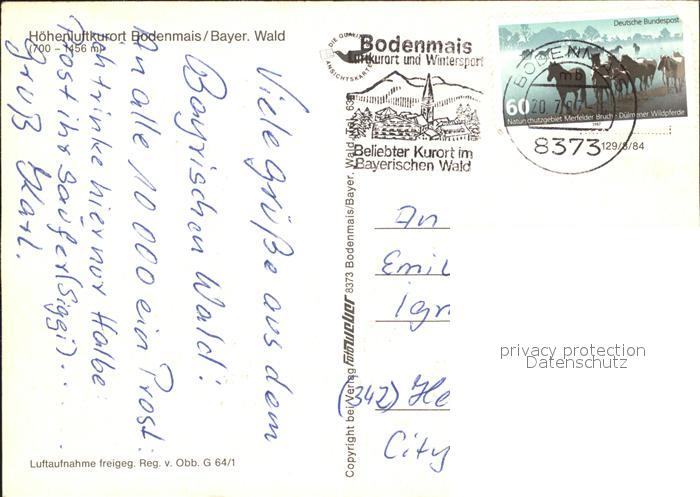 Höhenluftkurort Bodenmais/Bayer. Wald
(700 – 1456 m)
Viele grüße aus dem
Bayrischen Wald!
An alle 10 000 ein Prost.
Ich trinke hier nur Halbe
Prost ihr Säufer (Siggi)...
Gruß Karl.
Luftaufnahme freigeg. Reg. v. Obb. G 64/1
Copyright bei Verlag 8373 Bodenmais/Bayer. Wald
DIE
ANSICHTSKARTE
Bodenmais
Luftkurort und Wintersport
Beliebter Kurort im
Bayerischen Wald
Deutsche Bundespost
60
Naturschutzgebiet Merfelder Bruch · Dülmener Wildpferde
1987
BODENM
mb
20.7.
8373
129/3/84
An
Emil
Igr
(342) He
City
privacy protection
Datenschutz